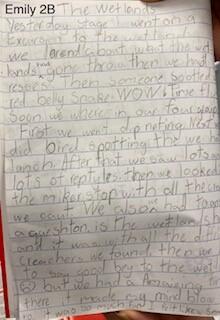 Emily 2B
The Wetlands
Yesterday Stage 1 went on a
Excursion to the wetlands
we lerend about what the wet
lands had gone throu then we had
reseses. Then someone spotted
red belly snake. WOW! Time
Soon we where in our four
First we went dip neting. Next
did bird spotting the we h
lunch. After that we saw lots
lots of reptules. then we looked
the
we caut. We also had to
a queshion is the wetlands
and it was with all the
creachers we found, then we
to say good bey to the wet
but we had a Amazeing
there it made my mind blow
so much